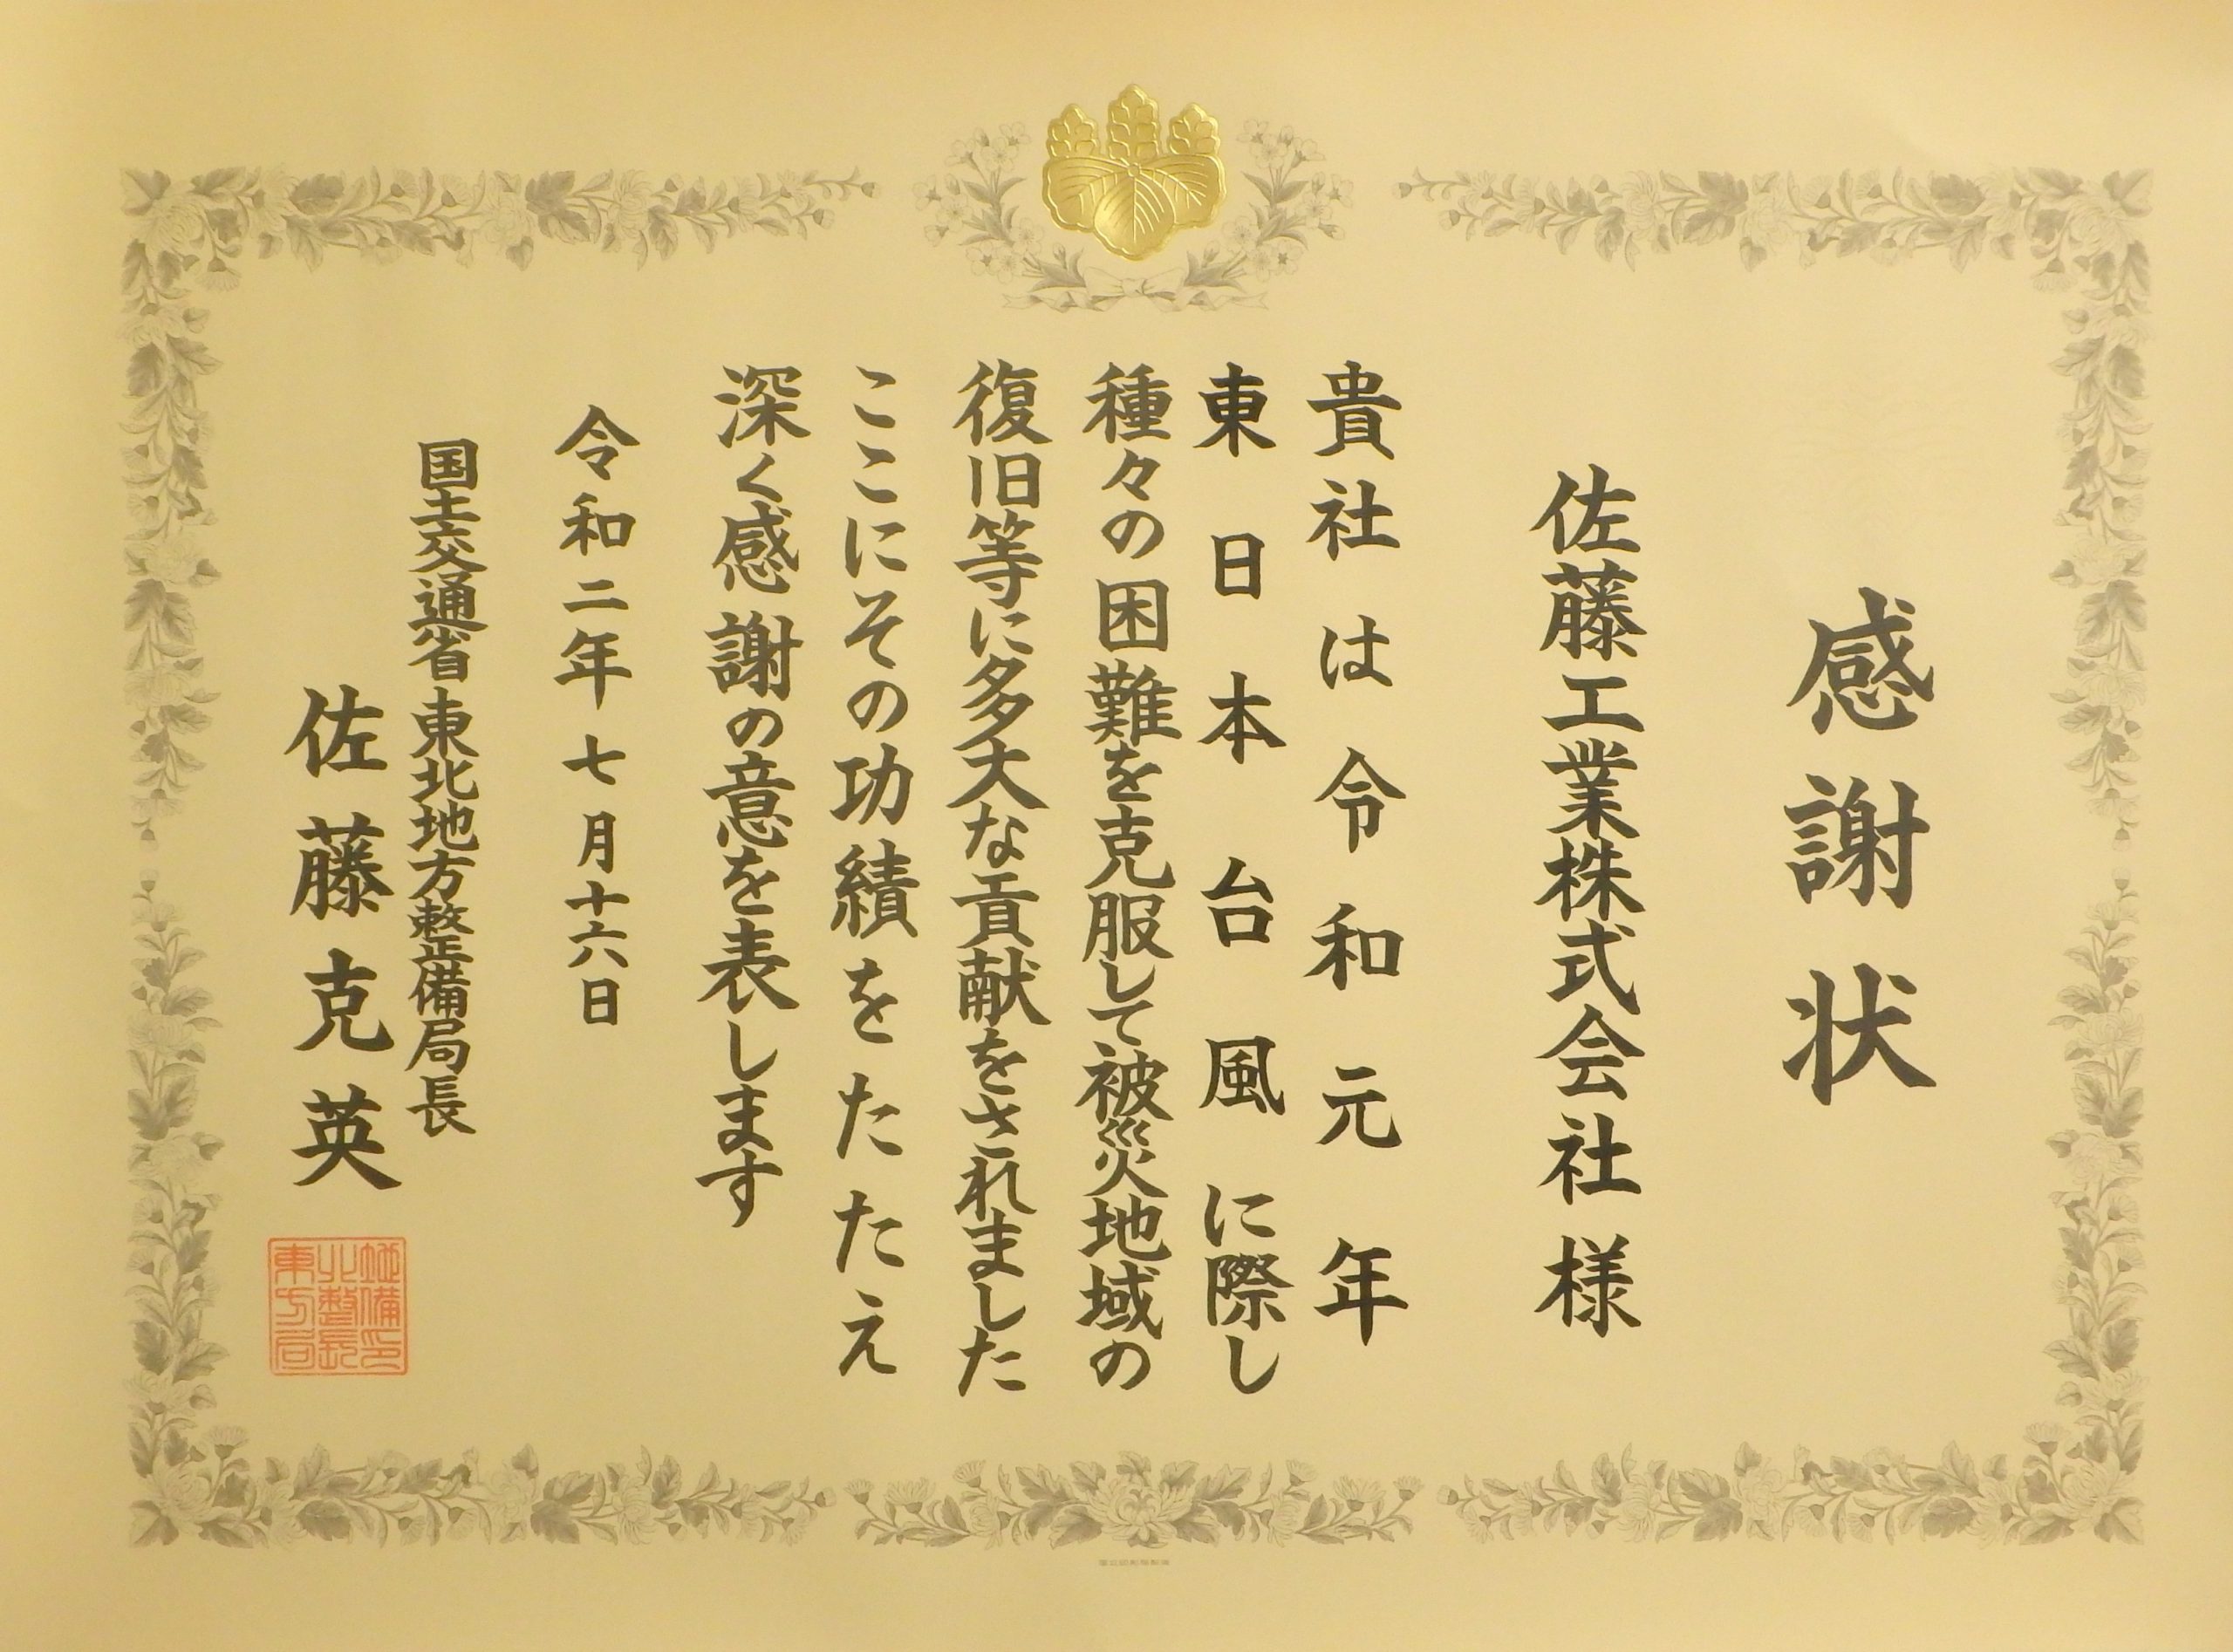 感謝状
佐藤工業株式会社様
貴社は令和元年
東日本台風に際し
種々の困難を克服して被災地域の
復旧等に多大な貢献をされました
ここにその功績をたたえ
深く感謝の意を表します
令和二年七月十六日
国土交通省東北地方整備局長
佐藤克英